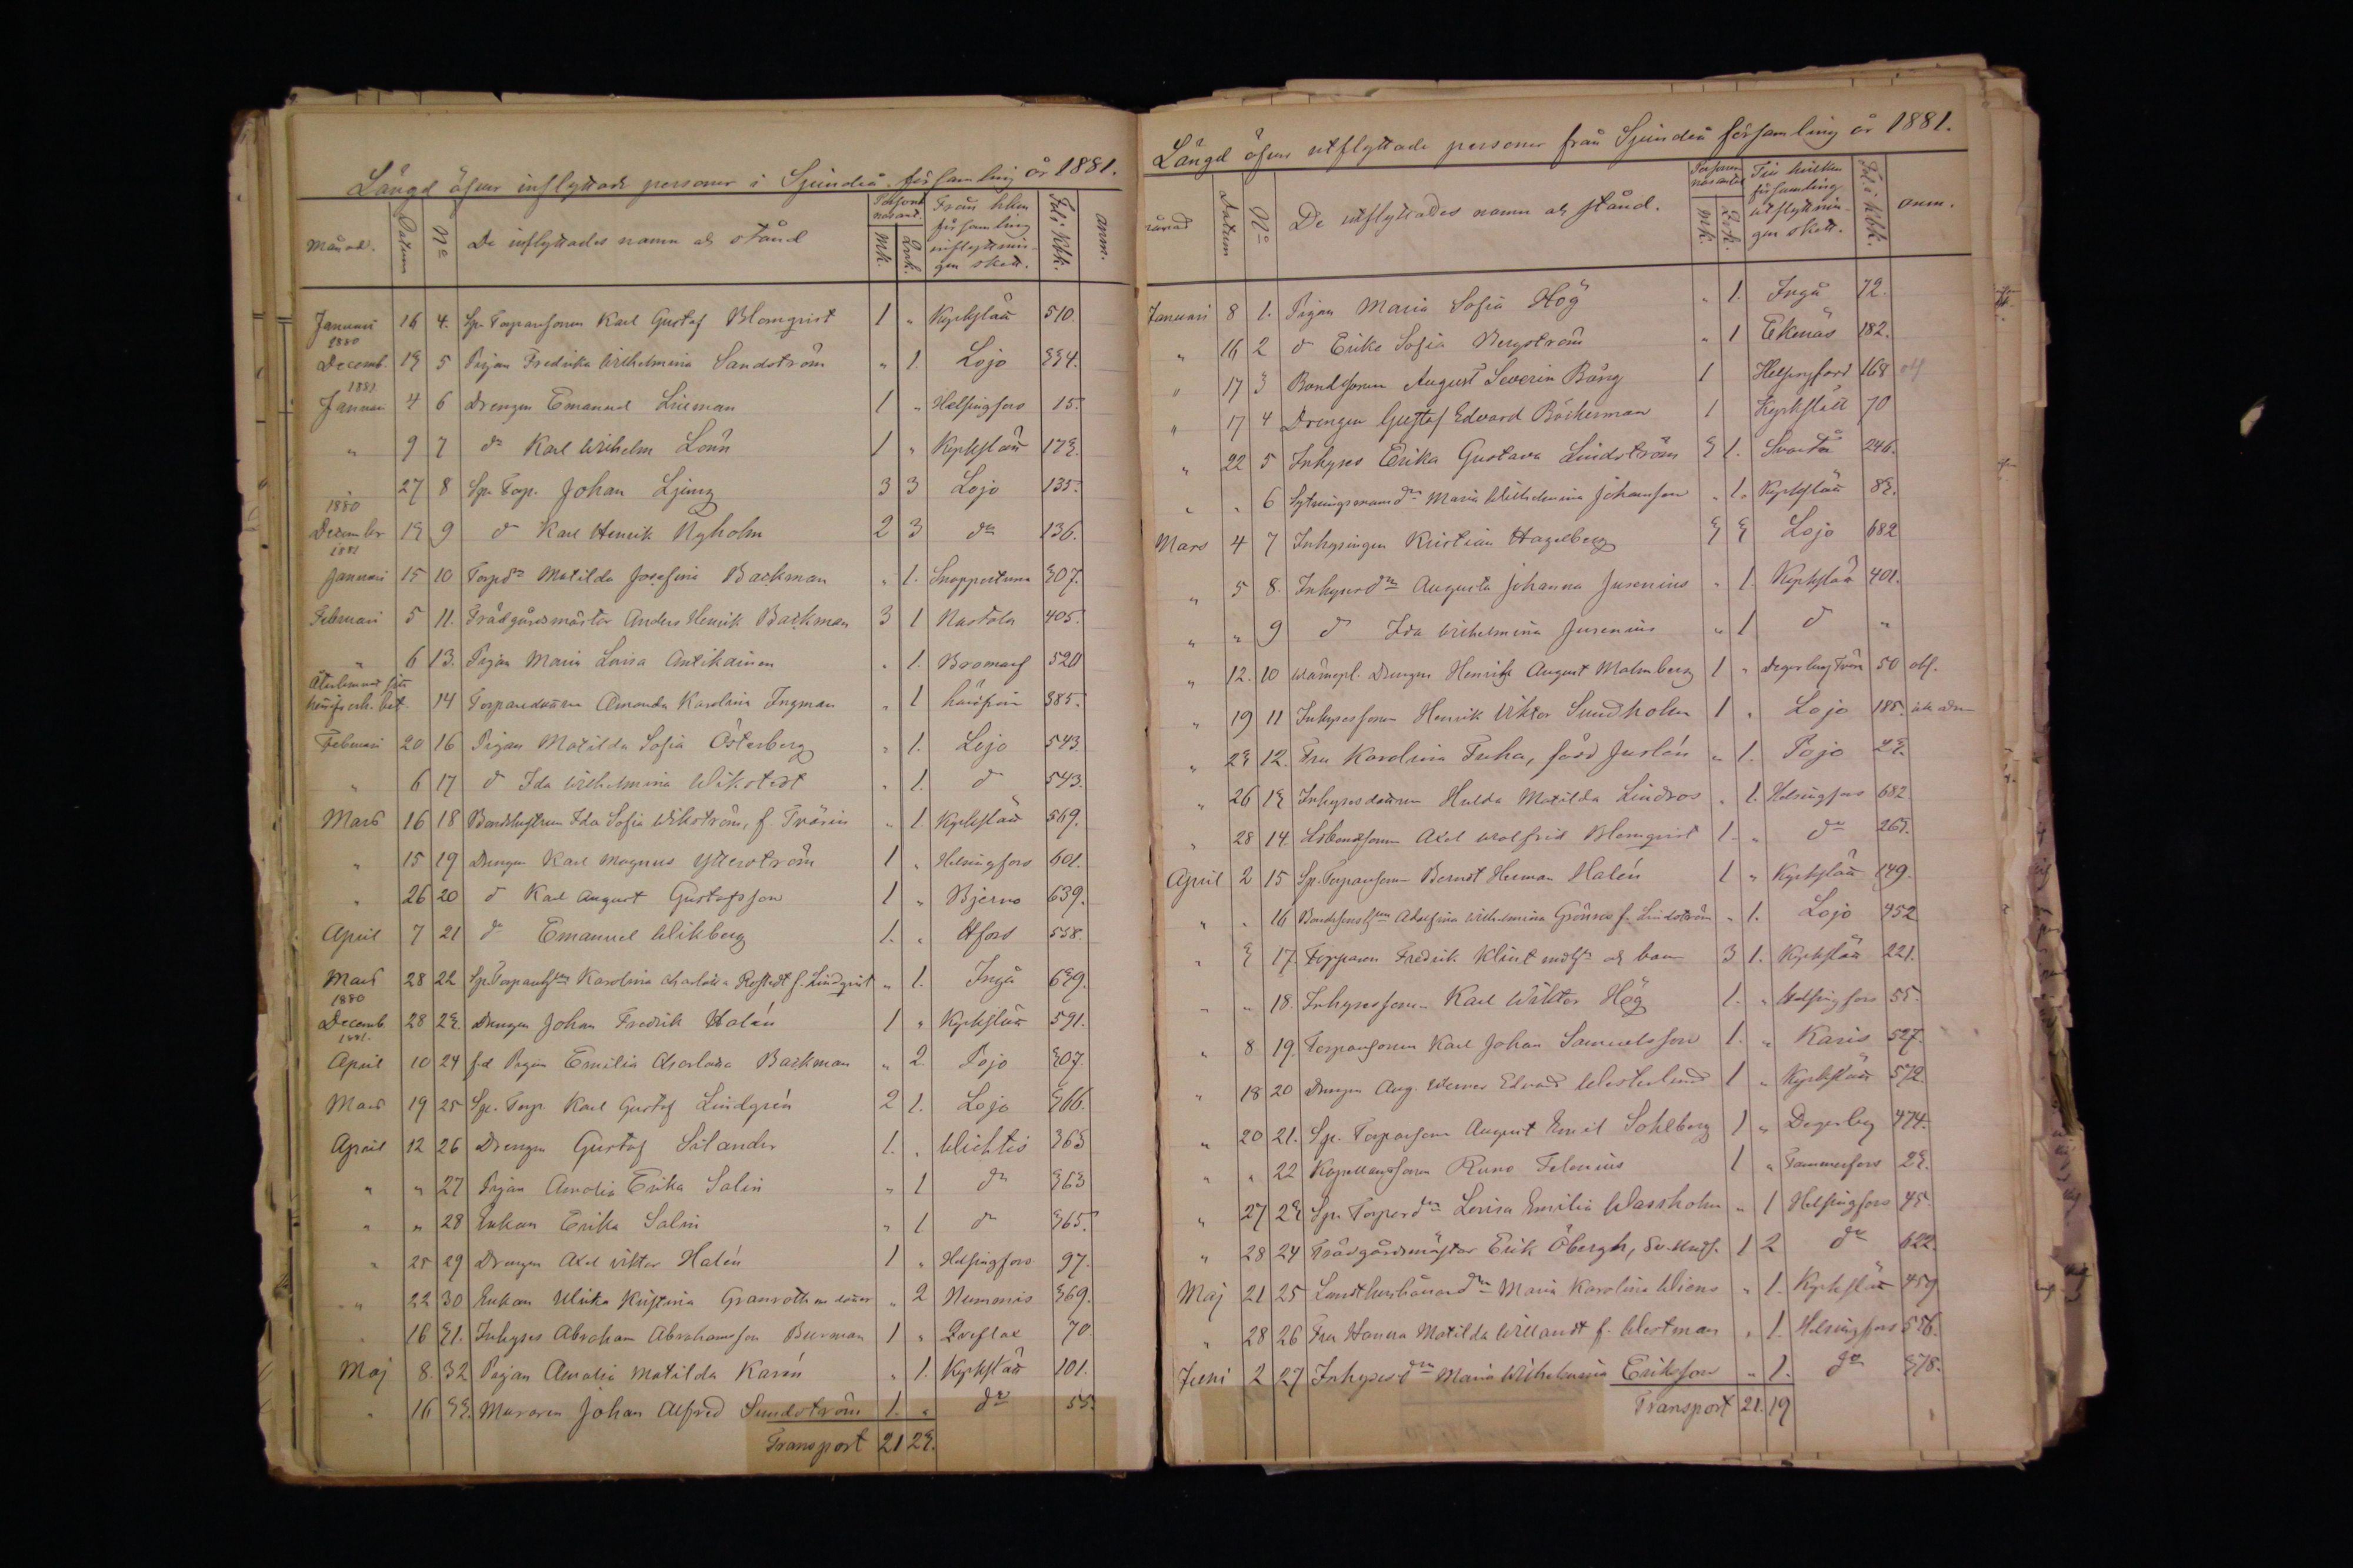 Längd öfver inflyttade personer i Sjundeå församling år 1881.
Månad. Datum No De inflyttades namn och stånd Personernas ant. Mk. Qvk. Från hvilken församling inflyttningen skett. Fol. i Kbk. anm.
Januari 16 4. Sp. Torparsonen Karl Gustaf Blomqvist 1 " Kyrkslätt 510.
1880
Decemb. 13 5 Pigan Fredrika Wilhelmina Sandström " 1. Lojo 334.
1881
Januari 4 6 Drengen Emanuel Lileman 1 " Helsingfors 15.
" 9 7 do Karl Wilhelm Lönn 1 " Kyrkslätt 173.
" 27 8 Sp. Torp. Johan Ljung 3 3 Lojo 135.
1880
December 13 9 do Karl Henrik Nyholm 2 3 do 136.
1881
Januari 15 10 Torpdn Matilda Josefina Backman " 1. Snappertuna 307.
Februari 5 11. Trädgårdsmästar Anders Henrik Backman 3 1 Nastola 405.
" 6 13. Pigan Maria Lovisa Antikainen " 1. Bromarf 520
14 Torparedottren Amanda Karolina Ingman " 1 385.
Februari 20 16 Pigan Matilda Sofia Österberg " 1. Lojo 543.
" 6 17 do Ida Wilhelmina Wikstedt " 1. do 543.
Mars 16 18 Bondehustrun Ida Sofia Wikström, f. Frösin " 1. Kyrkslätt 569.
" 15 19 Drengen Karl Magnus Ytterström 1 " Helsingfors 601.
" 26 20 do Karl August Gustafsson 1 " Bjerno 639.
April 7 21 do Emanuel Wikberg 1. " Hfors 558.
Mars 28 22 Sp. Torparehn Karolina Charlotta Rostedt f. Lindqvist " 1. Ingå 639.
1880
Decemb. 28 23. Drengen Johan Fredrik Halén 1 " Kyrkslätt 591.
1881.
April 10 24 f.d. Pigan Emilia Charlotta Backman " 2. Pojo 307.
Mars 19 25 Sp. Torp. Karl Gustaf Lindgrén 2 1. Lojo 366.
April 12 26 Drengen Gustaf Silander 1. " Wichtis 363
" " 27 Pigan Amalia Erika Salin " 1 do 363
" " 28 Enkan Erika Salin " 1 do 365.
" 25 29 Drengen Axel Viktor Halén 1 " Helsingfors 97.
" 22 30 Enkan Ulrika Kristina Granroth m. dotter " 2 Nummis 369.
" 16 31. Inhyses Abraham Abrahamsson Burman 1 " Qveflax 70.
Maj 8. 32 Pigan Amalia Matilda Karén " 1. Kyrkslätt 101.
" 16 33. Muraren Johan Alfred Sundström 1. " do 55.
Transport 21 23.
Längd öfver utflyttade personer från Sjundeå församling år 1881.
månad Datum No De utflyttades namn och stånd. Personernas antal Mk. Qvk. Till hvilken församling utflyttningen skett. Fol. i Kbk. anm.
Januari 8 1. Pigan Maria Sofia Hög " 1. Ingå 72.
" 16 2 do Erika Sofia Bergström " 1 Ekenäs 182.
" 17 3 Bondsonen August Severin Bång 1 Helsingford 168
" 17 4 Drengen Gustaf Edvard Böckerman 1 Kyrkslätt 70
" 22 5 Inhyses Erika Gustava Lindström 3 1. Svartå 246.
" " 6 Sytningsmansdn Maria Wilhelmina Johansson " 1. Kyrkslätt 83.
Mars 4 7 Inhysingen Kristian Hagelberg 3 3 Lojo 682
" 5 8. Inhysesdn Augusta Johanna Jusenius " 1. Kyrkslätt 401.
" " 9 do Ida Wilhelmina Jusenius " 1 do "
" 12. 10 Wärnepl. Drengen Henrik August Malmberg 1 " Degerby 50
" 19 11 Inhysessonen Henrik Viktor Sundholm 1 " Lojo 185.
" 23 12. Fru Karolina Tuha, född Juslén " 1. Pojo 23.
" 26 13 Inhysesdottren Hulda Matilda Lindros " 1. Helsingfors 682
" 28 14. Axel Wolfrid Blomqvist 1. " do 265.
April 2 15 Sp. Torparsonen Berndt Herman Halén 1 " Kyrkslätt 149.
" " 16 Adolfina Wilhelmina Grönroos f. Lindström " 1. Lojo 452
" 3 17. Torparen Fredrik Klint m. h. och barn 3 1. Kyrkslätt 221.
" " 18. Inhysessonen Karl Wiktor Hög 1. " Helsingfors 55.
" 8 19. Torparsonen Karl Johan Samuelsson 1. " Karis 527.
" 18 20 Drengen Aug. Werner Edvard Westerlund 1 " Kyrkslätt 572.
" 20 21. Sp. Torparson August Emil Sohlberg 1 " Degerby 474.
" " 22 Kapellanssonen Runo Felenius 1 " Tammerfors 23.
" 27 23 Sp. Torparedn Lovisa Emilia Wassholm " 1 Helsingfors 45.
" 28 24 Trädgårdsmästar Erik Öbergh, Sv. Unds. 1 2 do 622.
Maj 21 25 Maria Karolina Wiens " 1. Kyrkslätt 459
" 28 26 Fru Hanna Matilda Willandt f. Westman " 1. Helsingfors 556.
Juni 2 27 Inhysesdn Maria Wilhelmina Eriksson " 1. do 378.
Transport 21. 19